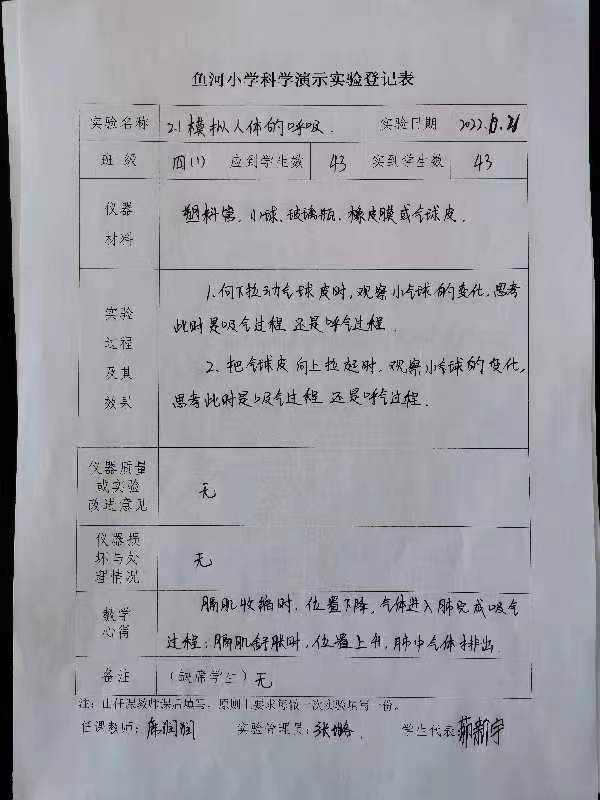 鱼河小学科学演示实验登记表
实验名称 2.1模拟人体的呼吸. 实验日期 2022.
班级 四(1) 应到学生数 43 实到学生数 43
仪器材料 塑料管、小球、玻璃瓶、橡皮膜或气球皮.
实验过程及其效果
1.向下拉动气球皮时,观察小气球的变化,思考
此时是吸气过程 还是呼气过程.
2. 把气球皮向上拉起时,观察小气球的变化,
思考此时是吸气过程 还是呼气过程.
仪器质量或实验改进意见 无
仪器损坏与处理情况 无
教学心得
膈肌收缩时,位置下降,气体进入肺完成吸气
过程;膈肌舒张时,位置上升,肺中气体排出.
备注 (缺席学生) 无
注:由任课教师课后填写,原则上要求每做一次实验填写一份。
任课教师: 实验管理员: 学生代表: